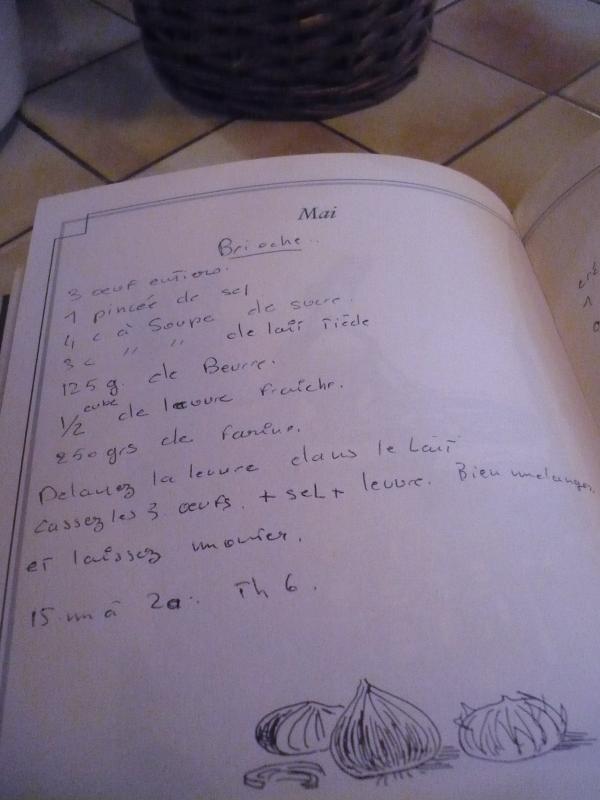 Mai
Brioche..
3 œuf entiers.
1 pincée de sel
4 c à Soupe de sucre.
3 c " " de lait Tiède
125 g. de Beurre.
1/2 cube de levure fraîche.
250 grs de farine.
Delayez la levure dans le Lait
cassez les 3 œufs. + sel + levure. Bien melanger.
et laissez monter.
15 m à 20. Th 6.